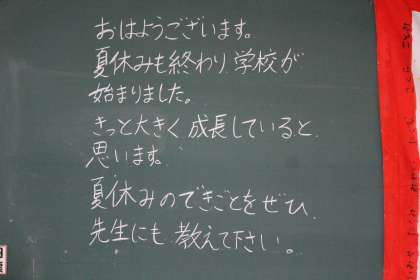 おはようございます。
夏休みも終わり学校が
始まりました。
きっと大きく成長していると
思います。
夏休みのできごとをぜひ
先生にも教えて下さい。